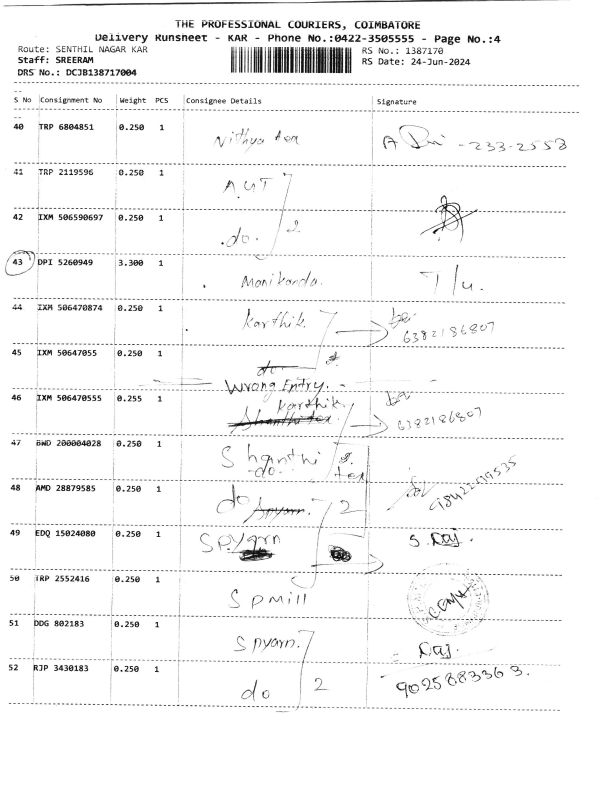 THE PROFESSIONAL COURIERS, COIMBATORE
Delivery Runsheet - KAR - Phone No.:0422-3505555 - Page No.:4
Route: SENTHIL NAGAR KAR RS No.: 1387170
Staff: SREERAM RS Date: 24-Jun-2024
DRS No.: DCJB138717004
S No Consignment No Weight PCS Consignee Details Signature
40 TRP 6804851 0.250 1 Nithya tex - 233-2558
41 TRP 2119596 0.250 1 A.U.T
42 IXM 506590697 0.250 1 do. 2
43 DPI 5260949 3.300 1 Manikanda. T/u.
44 IXM 506470874 0.250 1 Karthik. 6382186807
45 IXM 50647055 0.250 1 do
Wrong Entry.
46 IXM 506470555 0.255 1 Karthik. 6382186807
Shanthi tex
47 BWD 200004028 0.250 1 Shanthi tex
do.
48 AMD 28879585 0.250 1 do Spyarn. 2
49 EDQ 15024080 0.250 1 S.pyarn S. Raj.
50 TRP 2552416 0.250 1 S p mill
51 DDG 802183 0.250 1 S pyarn. Raj.
52 RJP 3430183 0.250 1 do 2 9025883363.